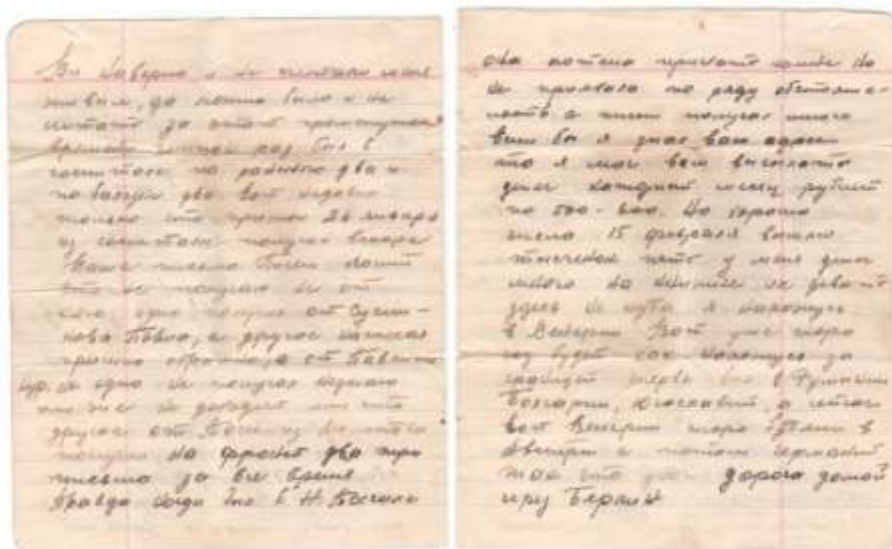 Вы наверно и не считали меня
живым, да можно было и не
считать за этот
время раз был в
госпитале по ранению два и
по болезни два вот недавно
только что пришел 26 января
из госпиталя получил вчера
Ваше письмо
что не получаю не от
кого одно получил от
нова Павла, а другое написал
обратно, а от
не одно не получил не знаю
или не доходят или что
другое от
получил на фронте два три
письма за все время
Правда когда был в Н.
она хотела приехать но
не приехала по ряду обстоятель-
ность а писем получал много
Если бы я знал ваш адрес
то я мог вам высылать
денег каждый месяц рублей
по 500-600. Но хорошо
числа 15 февраля вышлю
тысченок пять у меня денег
много на книжке не девать
здесь не куда я нахожусь
в Венгрии Вот уже скоро
год будет как нахожусь за
границей был в Румынии
Болгарии, Югославии, а сейчас
вот Венгрии скоро будем в
Австрии а потом Германии
так что дорога домой
через Берлин